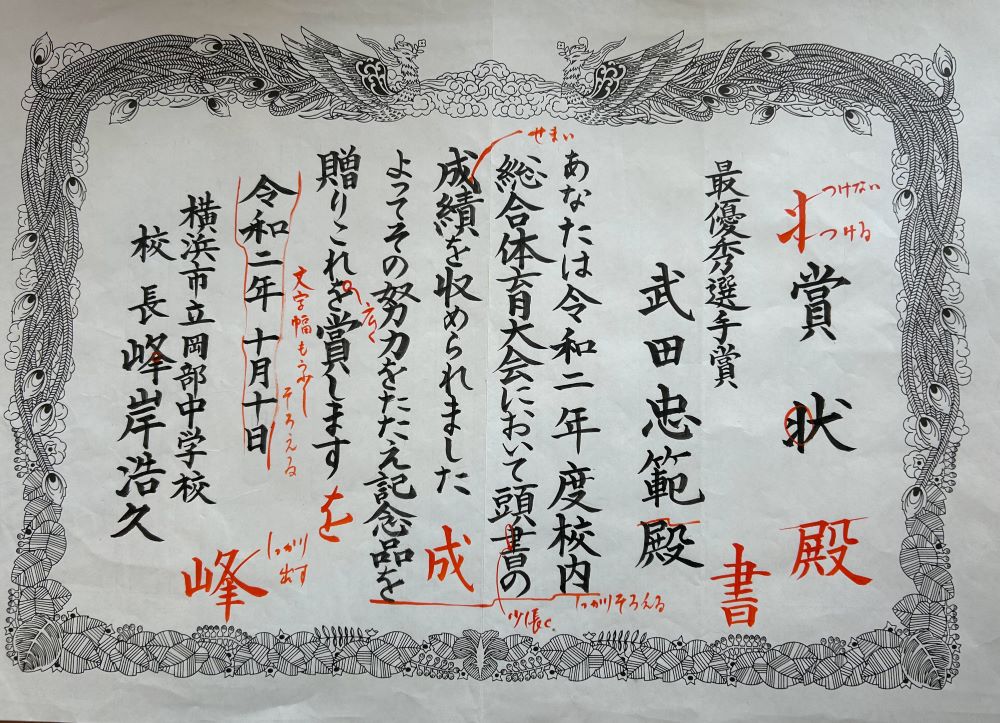 賞状
つけない
つける
最優秀選手賞
武田忠範殿
殿
書
あなたは令和二年度校内
総合体育大会において頭書の
成績を収められました
よってその努力をたたえ記念品を
贈りこれを賞します
せまい
しっかりそろえる
少し長く
成
広く
を
令和二年十月十日
文字幅もう少し
そろえる
横浜市立岡部中学校
校長峰岸浩久
峰
しっかり
出す